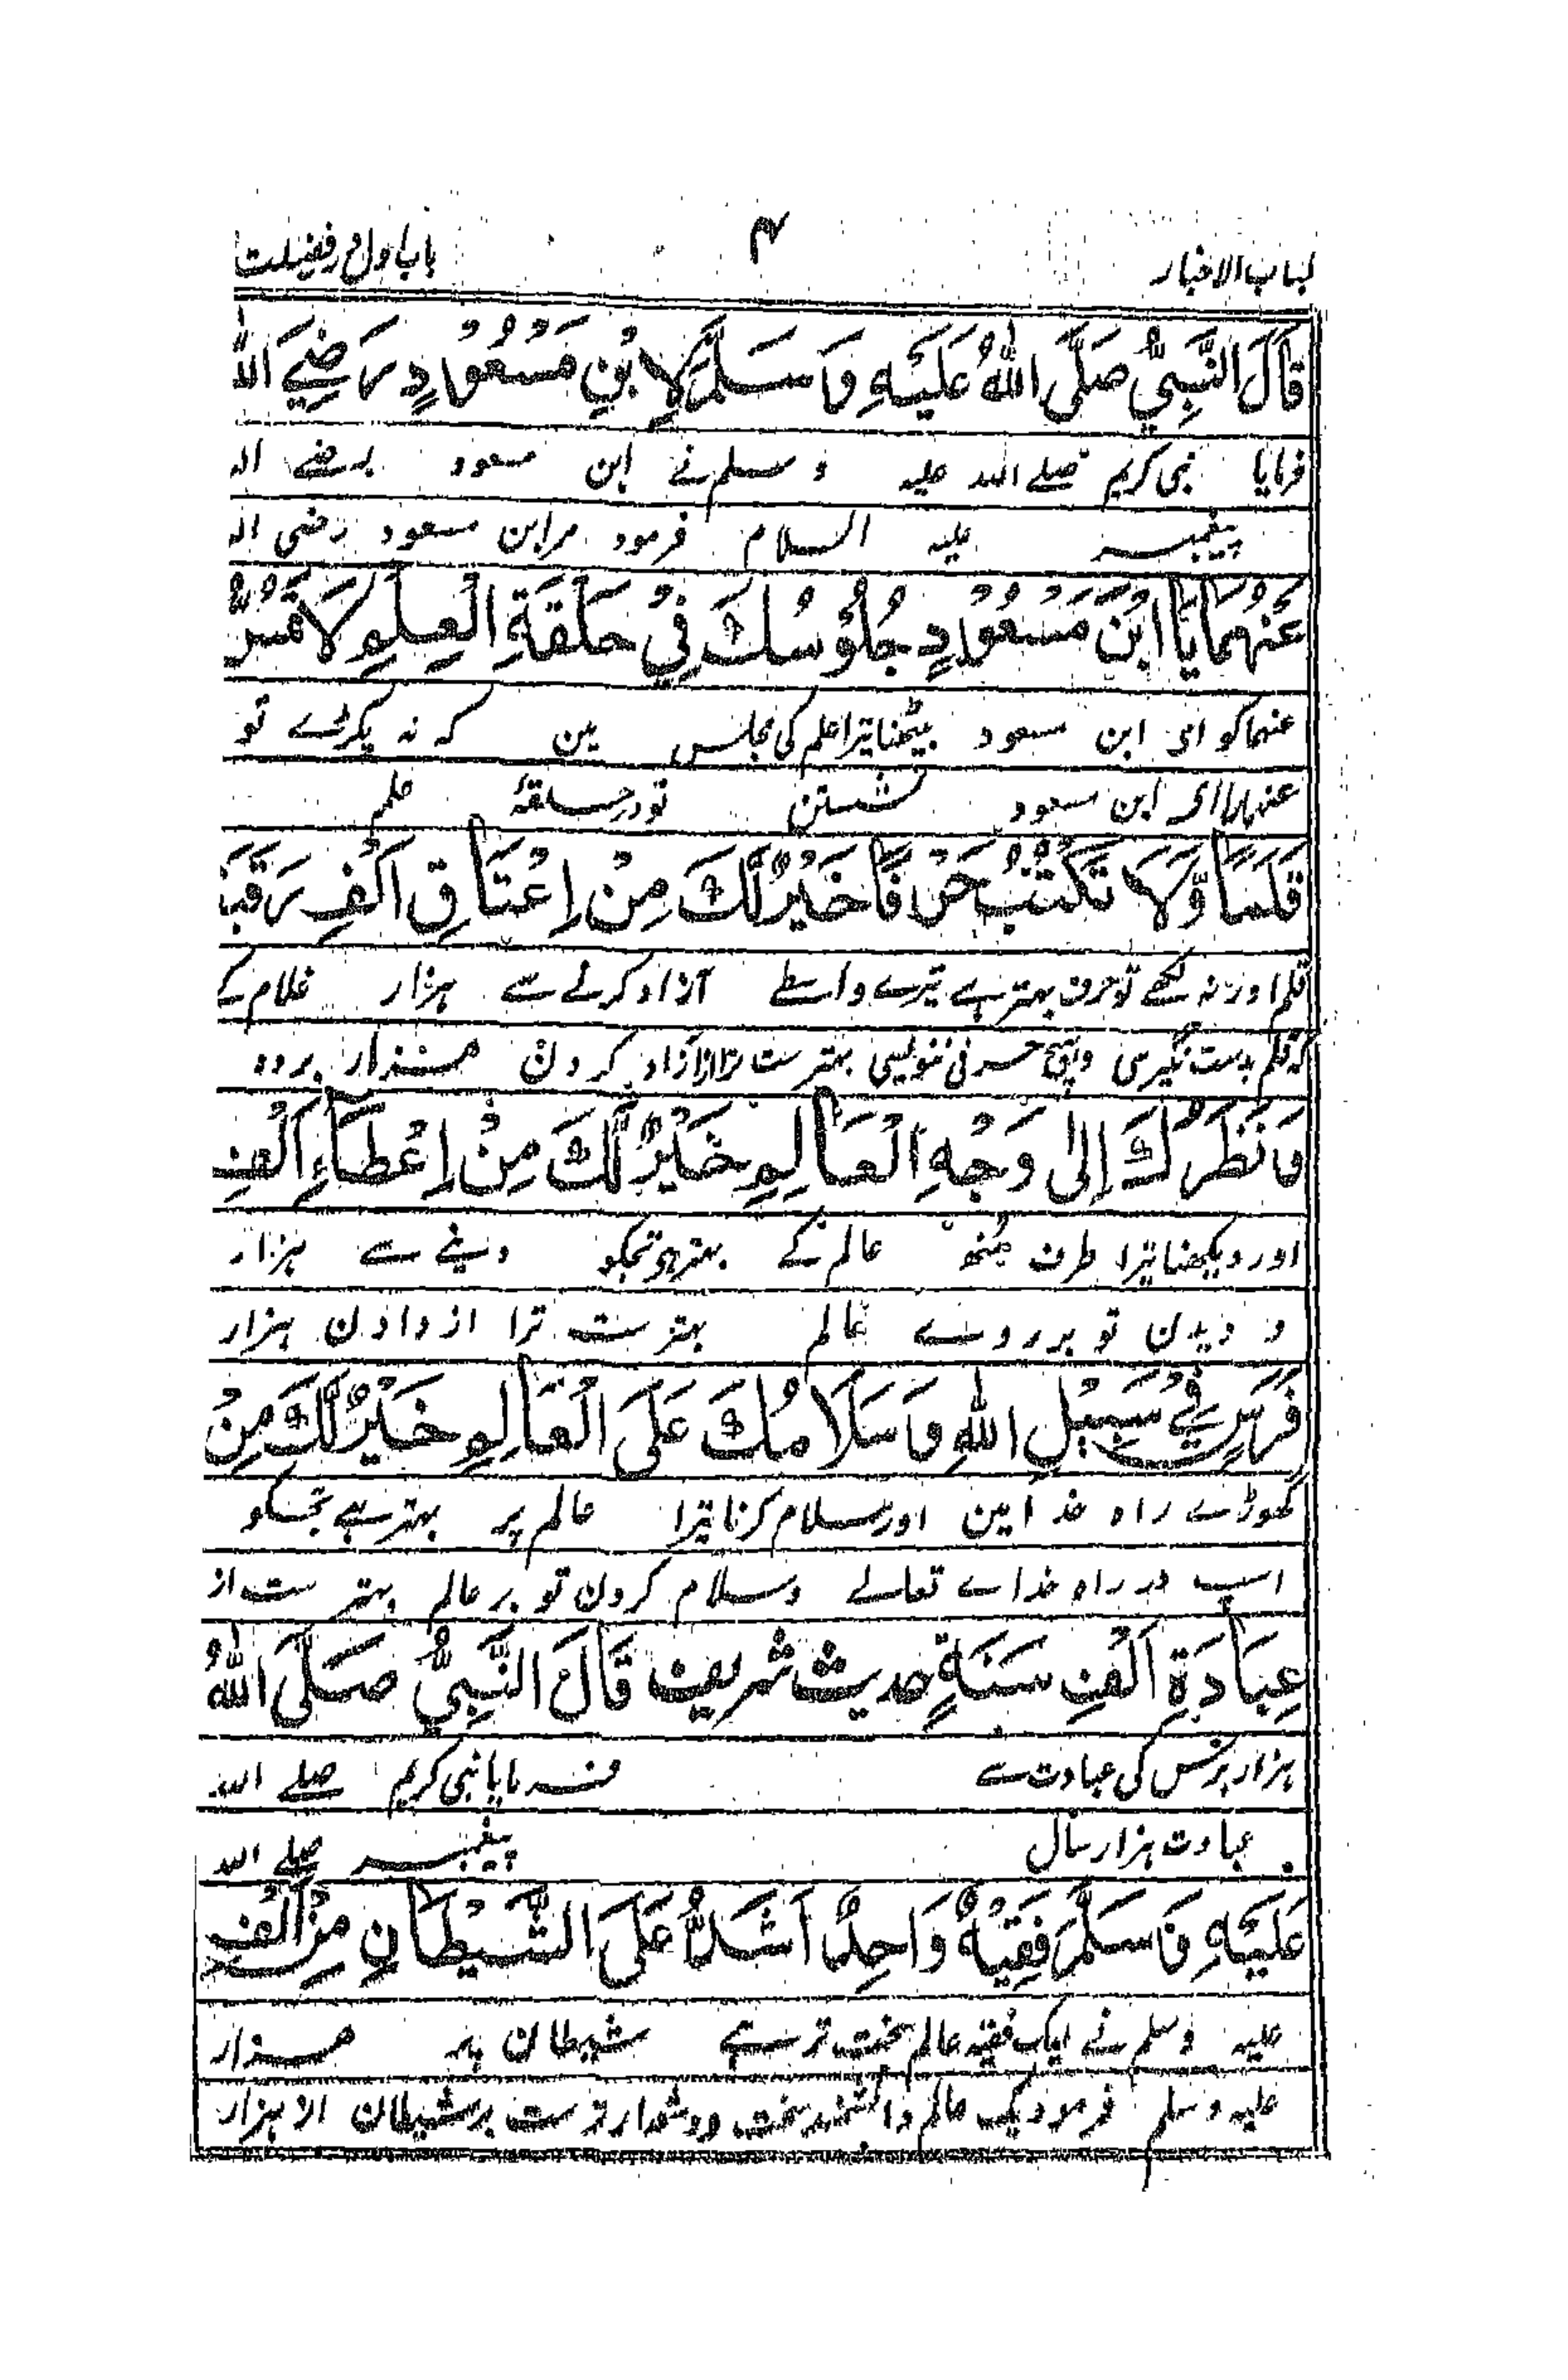 لباب الاخبار ۴ باب اول در فضیلت
قَالَ النَّبِيُّ صَلَّى اللهُ عَلَيْهِ وَسَلَّمَ لِابْنِ مَسْعُوْدٍ رَضِيَ اللهُ
فرمایا نبی کریم صلے اللہ علیہ و سلم نے ابن مسعود رضے اللہ
پیغمبر علیہ السلام فرمود مر ابن مسعود رضی اللہ
عَنْهُمَا يَا ابْنَ مَسْعُوْدٍ جُلُوْسُكَ فِيْ حَلَقَةِ الْعِلْمِ لَا تَمَسُّ
عنہما کو ای ابن مسعود بیٹھنا تیرا علم کی مجلس مین کہ نہ پکڑے تو
عنہما را اے ابن مسعود نشستن تو در حلقۂ علم
قَلَمًا وَّلَا تَكْتُبُ حَرْفًا خَيْرٌ لَّكَ مِنْ اِعْتَاقِ اَلْفِ رَقَبَةٍ
قلم اور نہ لکھے تو حرف بہتر ہے تیرے واسطے آزاد کرنے سے ہزار غلام کے
کہ قلم بدست نگیری و ہیچ حرفی ننویسی بہتر ست ترا از آزاد کردن ہزار بردہ
وَنَظَرُكَ اِلٰى وَجْهِ الْعَالِمِ خَيْرٌ لَّكَ مِنْ اِعْطَاءِ اَلْفِ
اور دیکھنا تیرا طرف منھ عالم کے بہتر ہو تجکو دینے سے ہزار
و دیدن تو بر روے عالم بہتر ست ترا از دادن ہزار
فَرَسٍ فِيْ سَبِيْلِ اللهِ وَسَلَامُكَ عَلَى الْعَالِمِ خَيْرٌ لَّكَ مِنْ
گھوڑے راہ خدا مین اور سلام کرنا تیرا عالم پر بہتر ہے تجکو
اسپ در راہ خداے تعالے و سلام کردن تو بر عالم بہتر ست از
عِبَادَةِ اَلْفِ سَنَةٍ حدیث شریف قَالَ النَّبِيُّ صَلَّى اللهُ
ہزار برس کی عبادت سے فرمایا نبی کریم صلے اللہ
عبادت ہزار سال پیغمبر صلے اللہ
عَلَيْهِ وَسَلَّمَ فَقِيْهٌ وَاحِدٌ اَشَدُّ عَلَى الشَّيْطَانِ مِنْ اَلْفِ
علیہ وسلم نے ایک فقیہ عالم سخت تر ہے شیطان پر ہزار
علیہ وسلم فرمود یک عالم دانشمند سخت و دشوار تر ست بر شیطان از ہزار